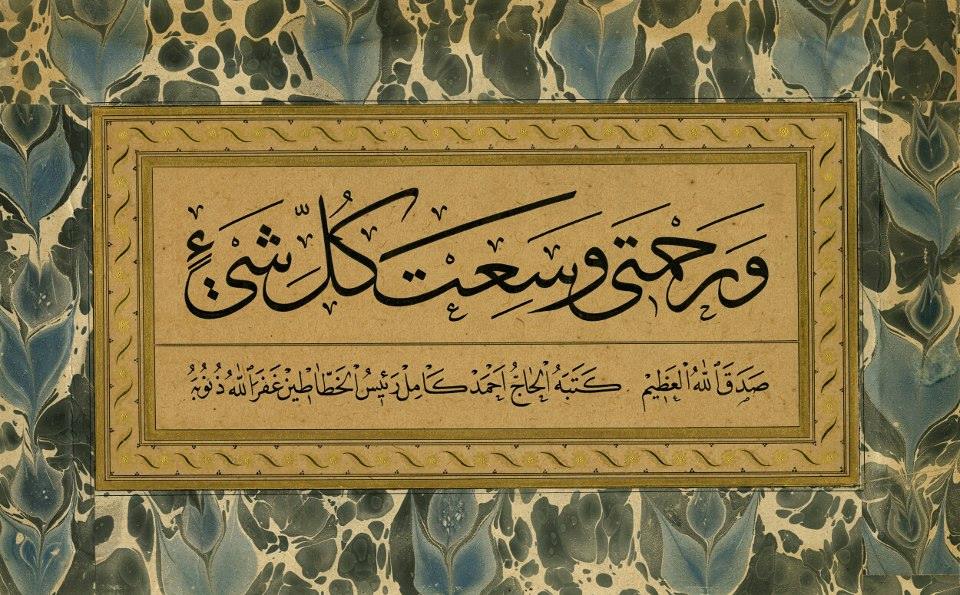 وَرَحْمَتِى وَسِعَتْ كُلَّ شَىْءٍ
صَدَقَ اللهُ الْعَظِيمُ كَتَبَهُ الْحَاجُّ اَحْمَدْ كَامِلْ رَئِيسُ الْخَطَّاطِينْ غَفَرَ اللهُ ذُنُوبَهُ